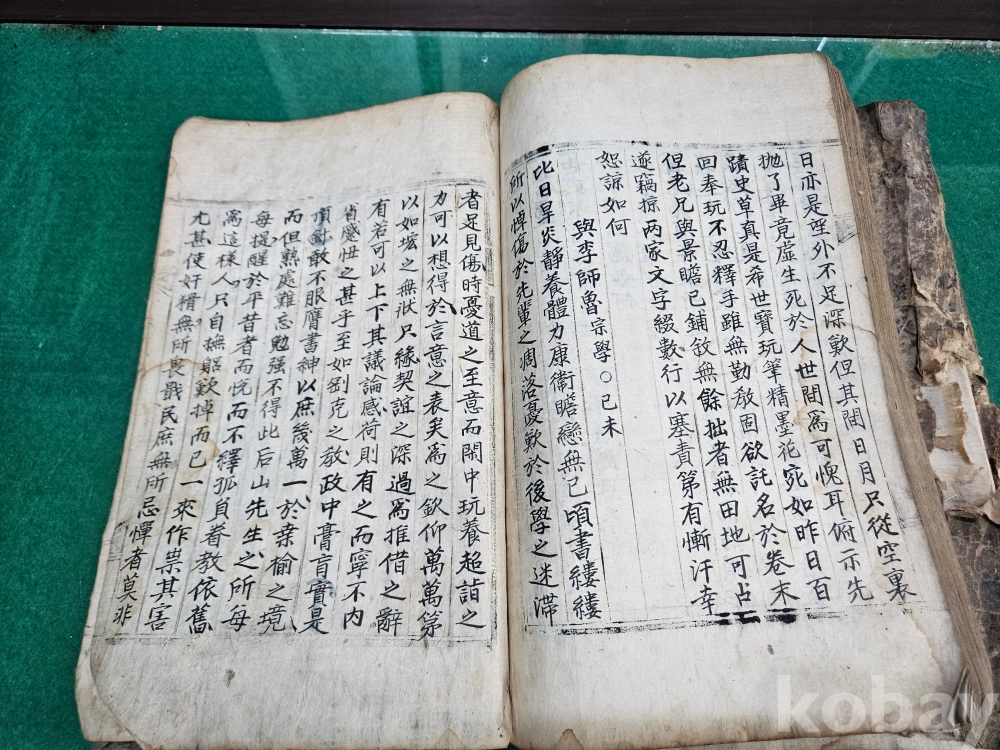 日亦是聖外不足深歎但其間日月只從空裏
抛了畢竟虛生死於人世間爲可愧耳俯示先
蹟史草真是希世寶玩筆精墨花宛如昨日百
回奉玩不忍釋手雖無勤放固欲託名於卷末
但老兄與景瞻已鋪敘無餘拙者無田地可占
遂竊掠兩家文字綴數行以塞責第有慚汗幸
恕諒如何
與李師魯宗學○己未
比日旱炎靜養體力康衛瞻戀無已頃書縷縷
所以悼傷於先輩之凋落憂歎於後學之迷滯
者足見傷時憂道之至意而閑中玩養超詣之
力可以想得於言意之表矣爲之欽仰萬萬第
以如宏之無狀只緣契誼之深過爲推借之辭
有若可以上下其議論感荷則有之而寧不內
省蹙忸之甚乎至如剛克之放政中膏肓實是
頂針敢不服膺書紳以庶幾萬一於桑榆之境
而但熟處難忘勉强不得此后山先生之所每
每提醒於平昔者而恍而不釋孤負眷教依舊
爲這樣人只自撫躬歎掉而已一夾作祟其害
尤甚使奸猾無所畏戢民庶無所忌憚者莫非
kobay